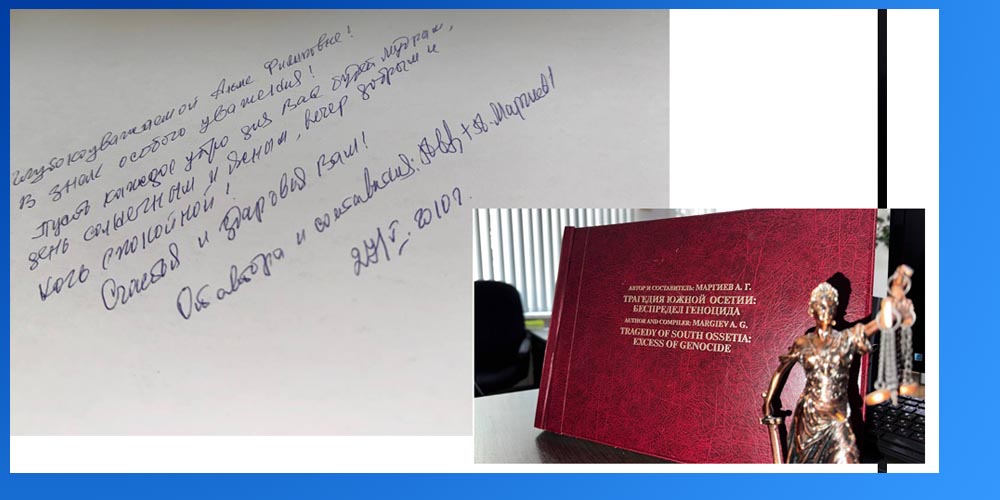 глубокоуважаемой Анне Филипповне!
В знак особого уважения!
Пусть каждое утро для Вас будет мудрым,
день солнечным и ясным, вечер добрым и
ночь спокойной!
Счастья и здоровья Вам!
От автора и составителя: Маргиев
27/V. 2010г.
АВТОР И СОСТАВИТЕЛЬ: МАРГИЕВ А. Г.
ТРАГЕДИЯ ЮЖНОЙ ОСЕТИИ:
БЕСПРЕДЕЛ ГЕНОЦИДА
AUTHOR AND COMPILER: MARGIEV A. G.
TRAGEDY OF SOUTH OSSETIA:
EXCESS OF GENOCIDE